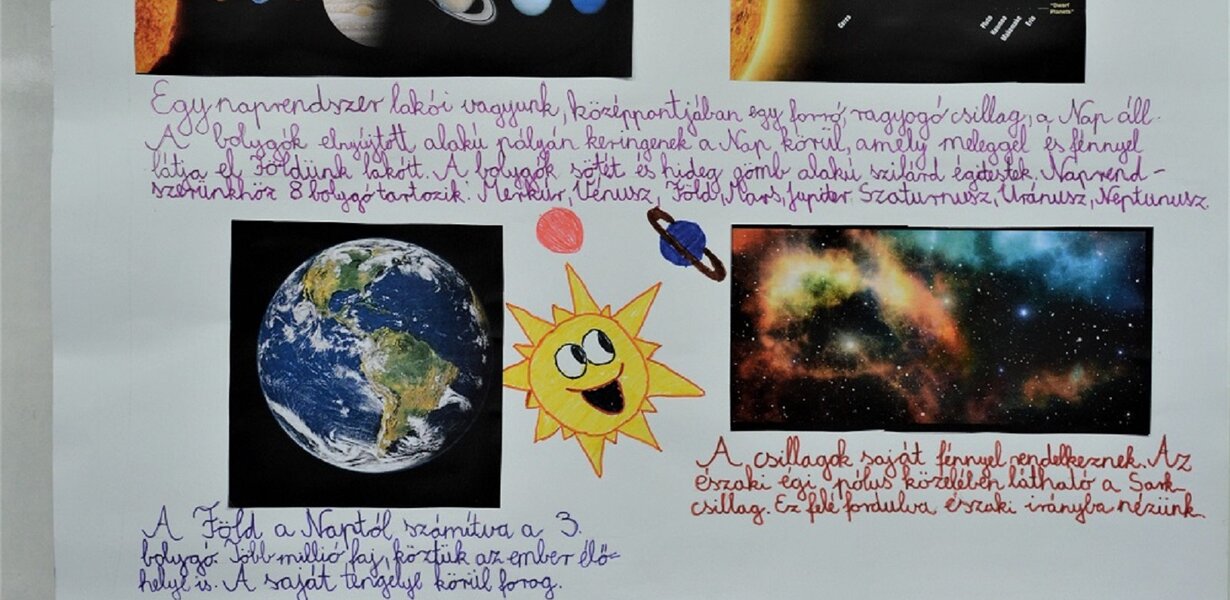 Ceres
Pluto
Haumea
Makemake
Eris
"Dwarf
Planets"
Egy naprendszer lakói vagyunk, középpontjában egy forró, ragyogó csillag, a Nap áll.
A bolygók elnyújtott alakú pályán keringenek a Nap körül, amely meleggel és fénnyel
látja el Földünk lakóit. A bolygók sötét és hideg gömb alakú szilárd égitestek. Naprend-
szerünkhöz 8 bolygó tartozik. Merkúr, Vénusz, Föld, Mars, Jupiter Szaturnusz, Uránusz, Neptunusz.
A csillagok saját fénnyel rendelkeznek. Az
északi égi pólus közelében látható a Sark-
csillag. Ez felé fordulva északi irányba nézünk.
A Föld a Naptól számítva a 3.
bolygó. Több millió faj, köztük az ember élő-
helye is. A saját tengelye körül forog.